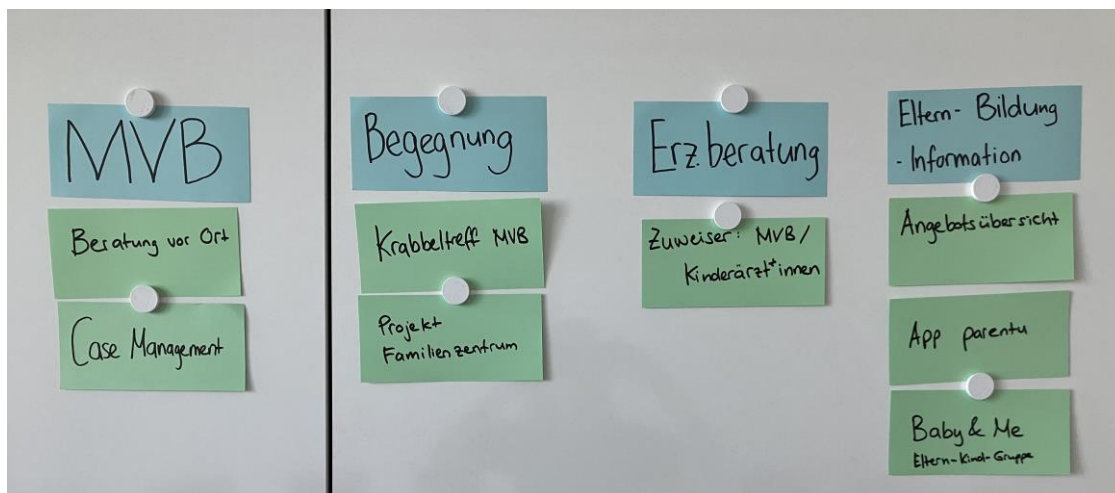 MVB
Beratung vor Ort
Case Management
Begegnung
Krabbeltreff MVB
Projekt
Familienzentrum
Erz.beratung
Zuweiser: MVB/
Kinderärzt*innen
Eltern- Bildung
- Information
Angebotsübersicht
App parentu
Baby & Me
Eltern-Kind-Gruppe